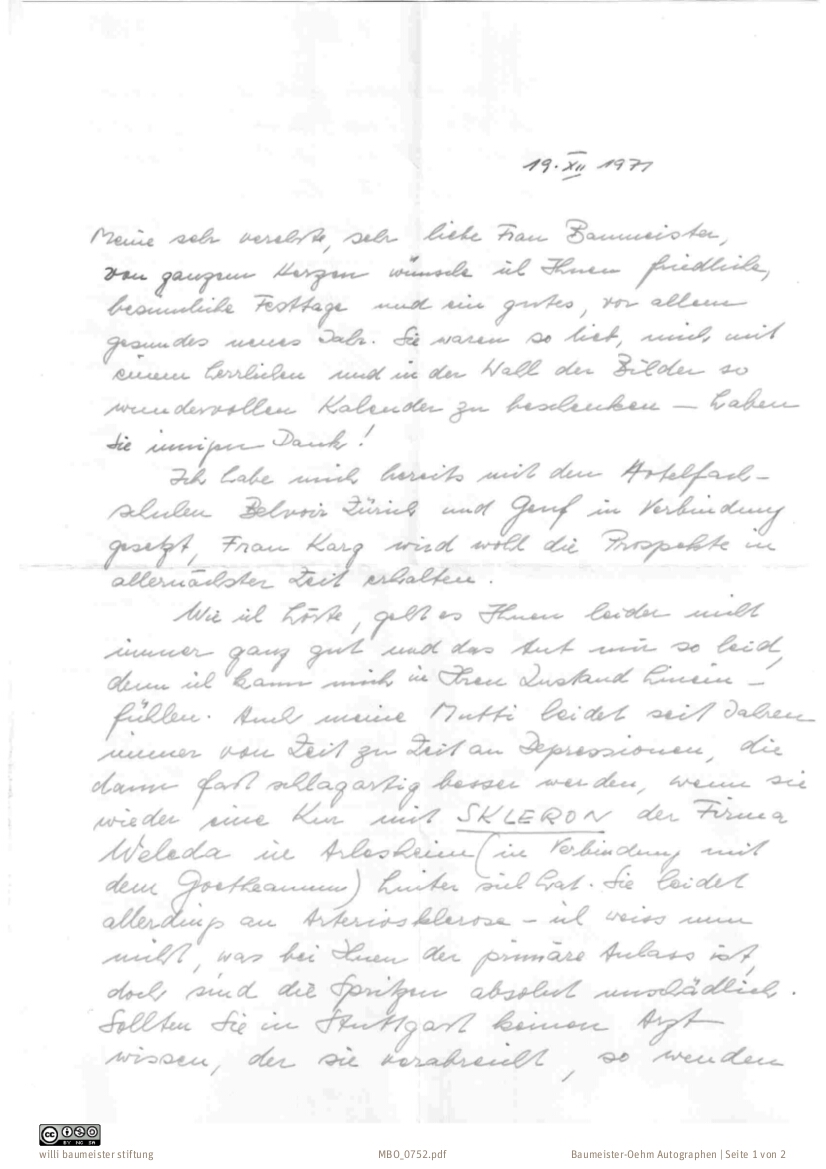 19. XII 1971
Meine sehr verehrte, sehr liebe Frau Baumeister,
von ganzem Herzen wünsche ich Ihnen friedliche,
besinnliche Festtage und ein gutes, vor allem
gesundes neues Jahr. Sie waren so lieb, mich mit
einem herrlichen und in der Wahl der Bilder so
wundervollen Kalender zu beschenken — haben
Sie innigen Dank!
Ich habe mich bereits mit den Hotelfach-
schulen Belvoir Zürich und Genf in Verbindung
gesetzt, Frau Karg wird wohl die Prospekte in
allernächster Zeit erhalten.
Wie ich hörte, geht es Ihnen leider nicht
immer ganz gut und das tut mir so leid,
denn ich kann mich in Ihren Zustand hinein-
fühlen. Auch meine Mutti leidet seit Jahren
immer von Zeit zu Zeit an Depressionen, die
dann fast schlagartig besser werden, wenn sie
wieder eine Kur mit SKLERON der Firma
Weleda in Arlesheim (in Verbindung mit
dem Goetheanum) hinter sich hat. Sie leidet
allerdings an Arteriosklerose – ich weiss nun
nicht, was bei Ihnen der primäre Anlass ist,
doch sind die Spritzen absolut unschädlich.
Sollten Sie in Stuttgart keinen Arzt
wissen, der sie verabreicht, so wenden
BY NC SA
willi baumeister stiftung
MBO_0752.pdf
Baumeister-Oehm Autographen | Seite 1 von 2